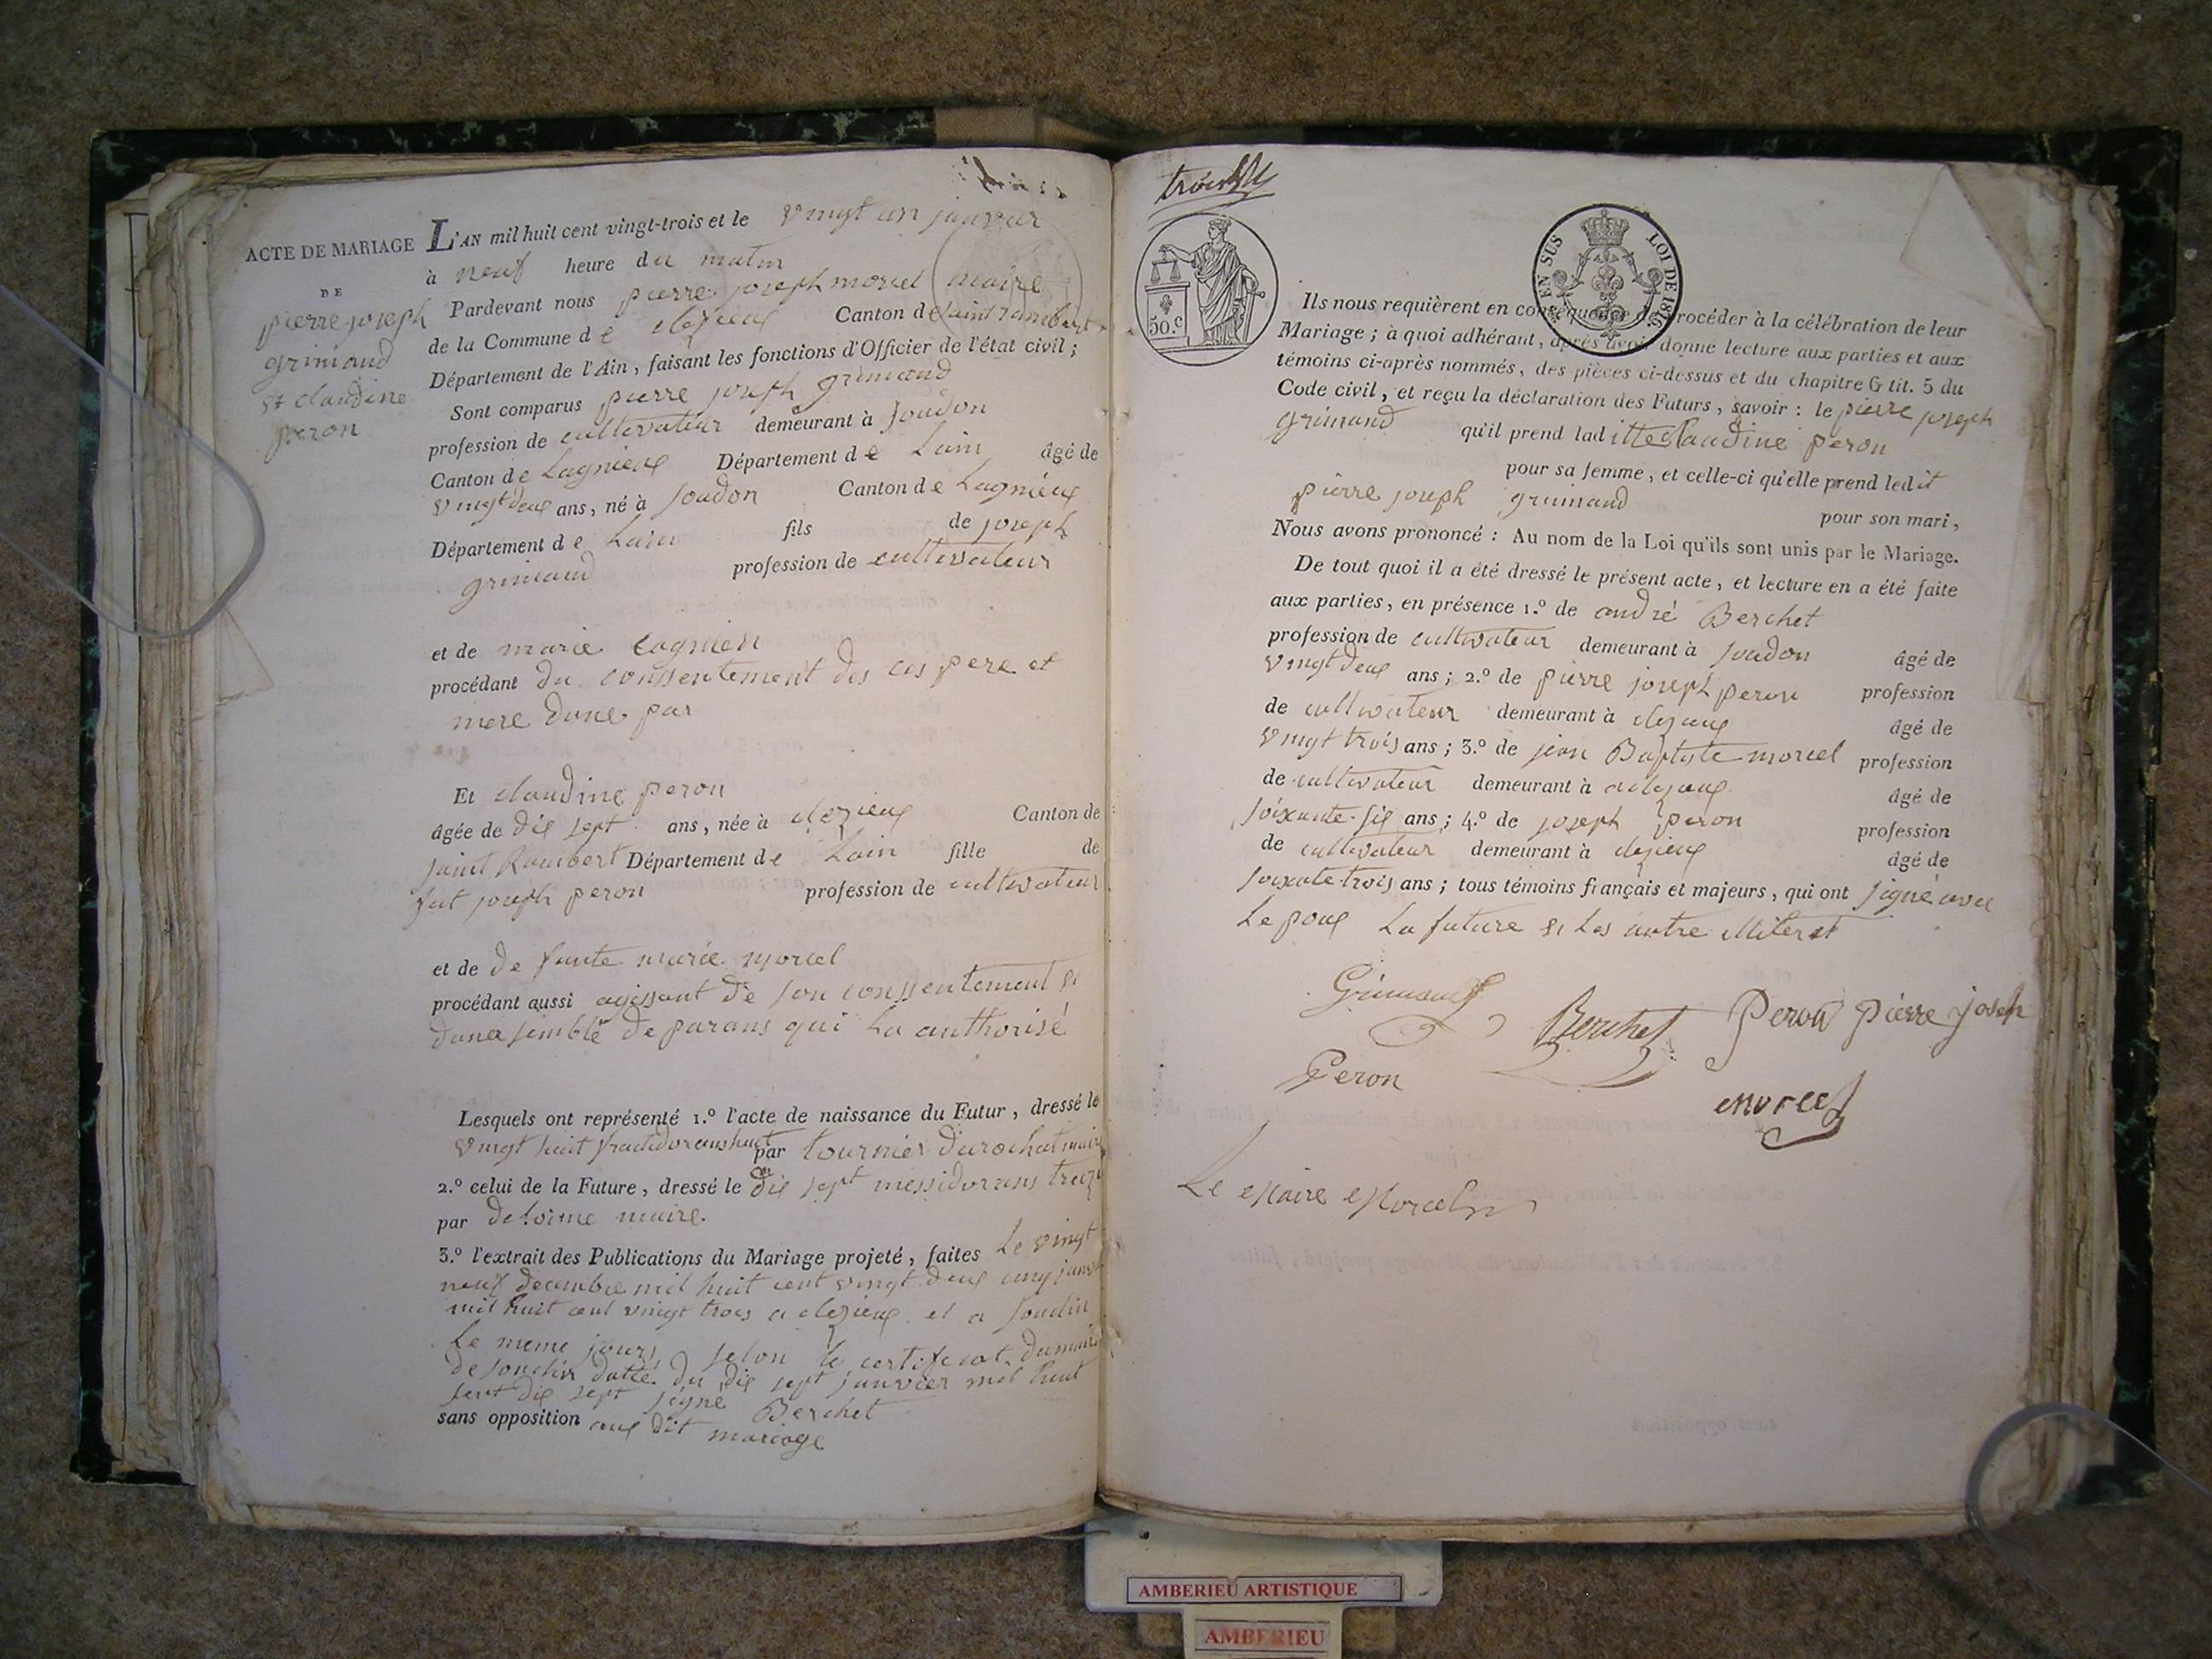 ACTE DE MARIAGE
DE
pierre joseph
grimaud
et claudine
peron
L'AN mil huit cent vingt-trois et le vingt un janvier
à neuf heure du matin
Pardevant nous pierre joseph morcel maire
de la Commune de clezieux Canton de saint rambert
Département de l'Ain, faisant les fonctions d'Officier de l'état civil;
Sont comparus pierre joseph grimaud
profession de cultivateur demeurant à soudon
Canton de Lagnieux Département de Lain âgé de
vingt deux ans, né à soudon Canton de Lagnieux
Département de Lain fils de joseph
grimaud profession de cultivateur
et de marie cagnien
procédant du conssentement des ces pere et
mere dune par
Et claudine peron
âgée de dix sept ans, née à clezieux Canton de
saint Rambert Département de Lain fille de
fut joseph peron profession de cultivateur
et de de funte marie morcel
procédant aussi agissant de son conssentement et
duna semblé de parans qui la authorisé
Lesquels ont représenté 1.º l'acte de naissance du Futur, dressé le
vingt huit par tournier durochat maire
2.º celui de la Future, dressé le dix sept messidor ans treize
par delorme maire.
3.º l'extrait des Publications du Mariage projeté, faites le vingt
neuf decembre mil huit cent vingt deux cinq janvier
mil huit cent vingt trois a clezieux et a soudin
le meme jours, selon le certificat du maire
de soudin datté du dix sept janvier mil huit
sent dix sept signe Berchet
sans opposition aux dit mariage
50.C
EN SUS LOI DE 1816.
Ils nous requièrent en conséquence de procéder à la célébration de leur
Mariage; à quoi adhérant, après avoir donné lecture aux parties et aux
témoins ci-après nommés, des pièces ci-dessus et du chapitre 6 tit. 5 du
Code civil, et reçu la déclaration des Futurs, savoir: le pierre joseph
grimaud qu'il prend laditte claudine peron
pour sa femme, et celle-ci qu'elle prend ledit
pierre joseph grimaud pour son mari,
Nous avons prononcé: Au nom de la Loi qu'ils sont unis par le Mariage.
De tout quoi il a été dressé le présent acte, et lecture en a été faite
aux parties, en présence 1.º de andré Berchet
profession de cultivateur demeurant à soudon âgé de
vingt deux ans; 2.º de pierre joseph peron profession
de cultivateur demeurant à clezieux âgé de
vingt trois ans; 3.º de jean Baptiste morcel profession
de cultivateur demeurant à clezieux âgé de
soixante six ans; 4.º de joseph peron profession
de cultivateur demeurant à clezieux âgé de
soixante trois ans; tous témoins français et majeurs, qui ont signé avec
Lepoux La future et Les autre illiteret
Grimaud
Berchet
Peron pierre joseph
Peron
morcel
Le Maire Morcel
AMBERIEU ARTISTIQUE
AMBERIEU